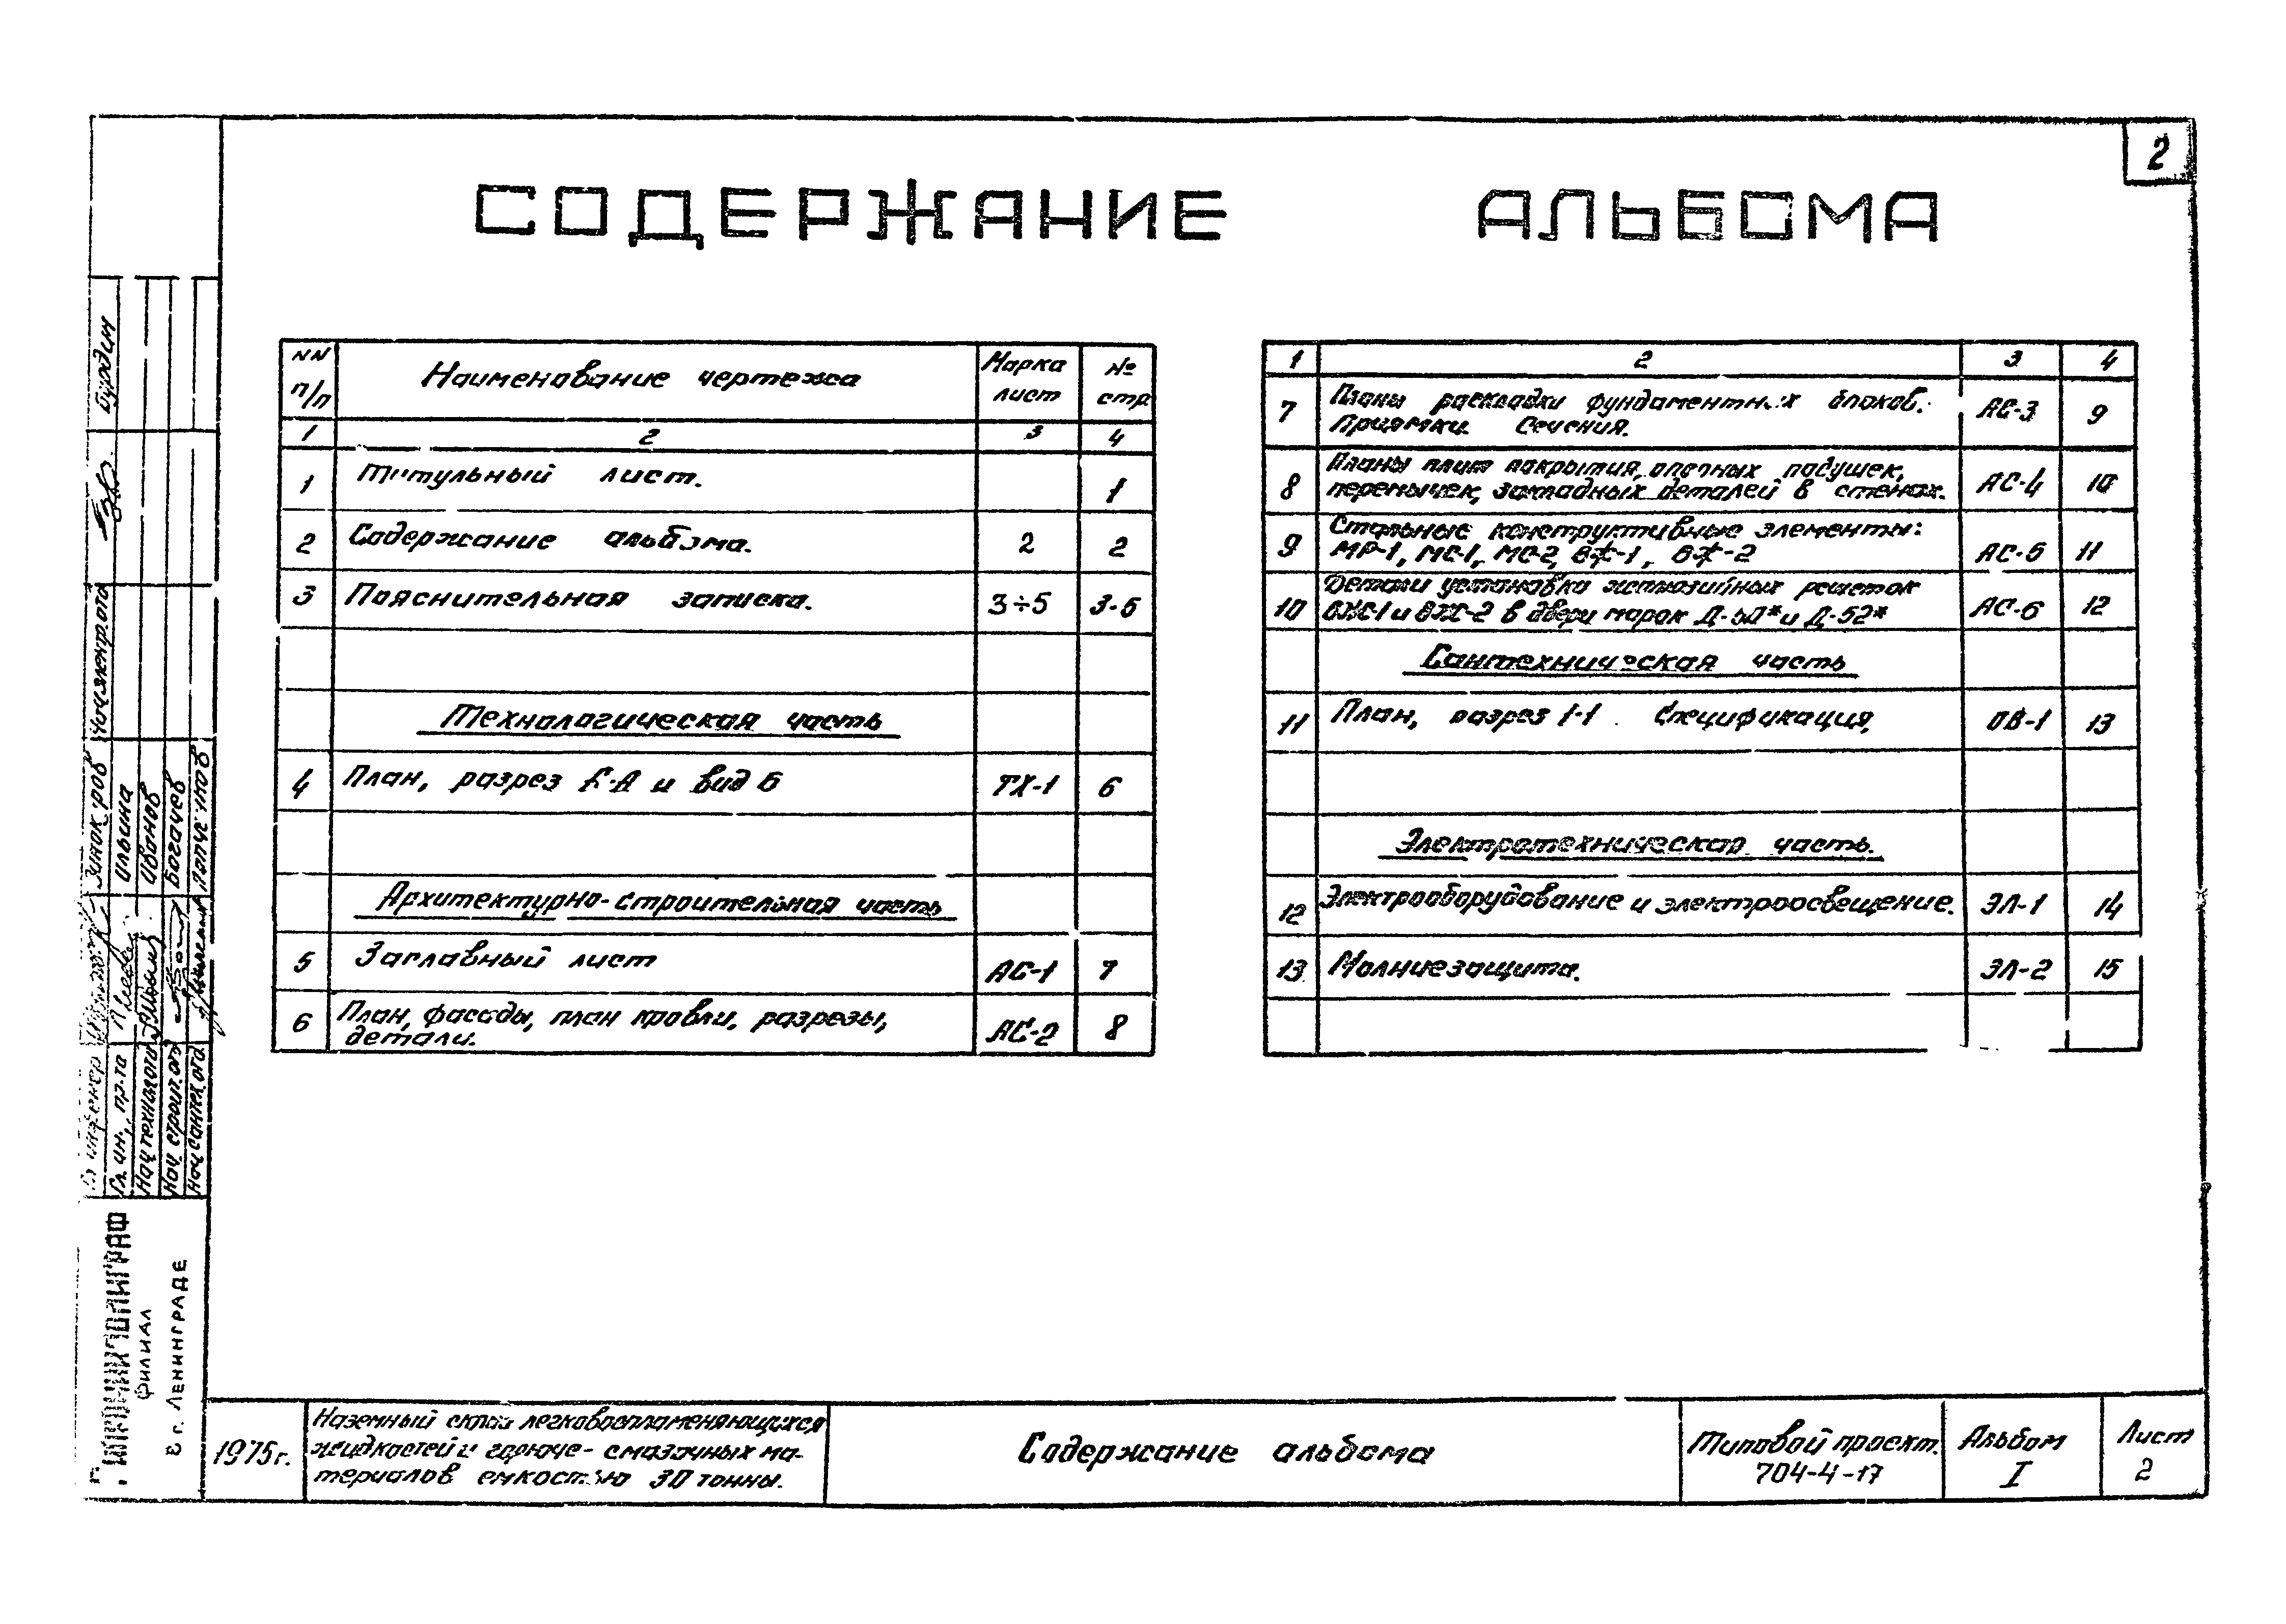 2
СОДЕРЖАНИЕ АЛЬБОМА
NN п/п Наименование чертежа Марка лист № стр
1 2 3 4
1 Титульный лист. 1
2 Содержание альбома. 2 2
3 Пояснительная записка. 3÷5 3-5
Технологическая часть
4 План, разрез и вид Б ТХ-1 6
Архитектурно-строительная часть
5 Заглавный лист АС-1 7
6 План, фасады, план кровли, разрезы, АС-2 8
детали.
1 2 3 4
7 Планы раскладки фундаментных блоков. АС-3 9
Приямки. Сечения.
8 Планы плит покрытия, опорных подушек, АС-4 10
перемычек, закладных деталей в стенах.
9 Стальные конструктивные элементы: АС-5 11
МР-1, МС-1, МС-2, ВЖ-1, ВЖ-2
10 Детали установки жалюзийных решеток АС-6 12
ВЖ-1 и ВЖ-2 в двери марок и Д-52*
Сантехническая часть
11 План, разрез 1-1. Спецификация, ОВ-1 13
Электротехническая часть.
12 Электрооборудование и электроосвещение. ЭЛ-1 14
13 Молниезащита. ЭЛ-2 15
Бурдин
Нач.электр.отд
Ильина
Иванов
Богачев
Гл. ин. пр-та
Нач технолог.
Нач строит.от
Нач сантех.отд
ГИПРОНИИПОЛИГРАФ
ФИЛИАЛ
В г. ЛЕНИНГРАДЕ
1975г.
Наземный склад легковоспламеняющихся
жидкостей и горюче-смазочных ма-
териалов емкостью 30 тонны.
Содержание альбома
Типовой проект.
704-4-17
Альбом
I
Лист
2